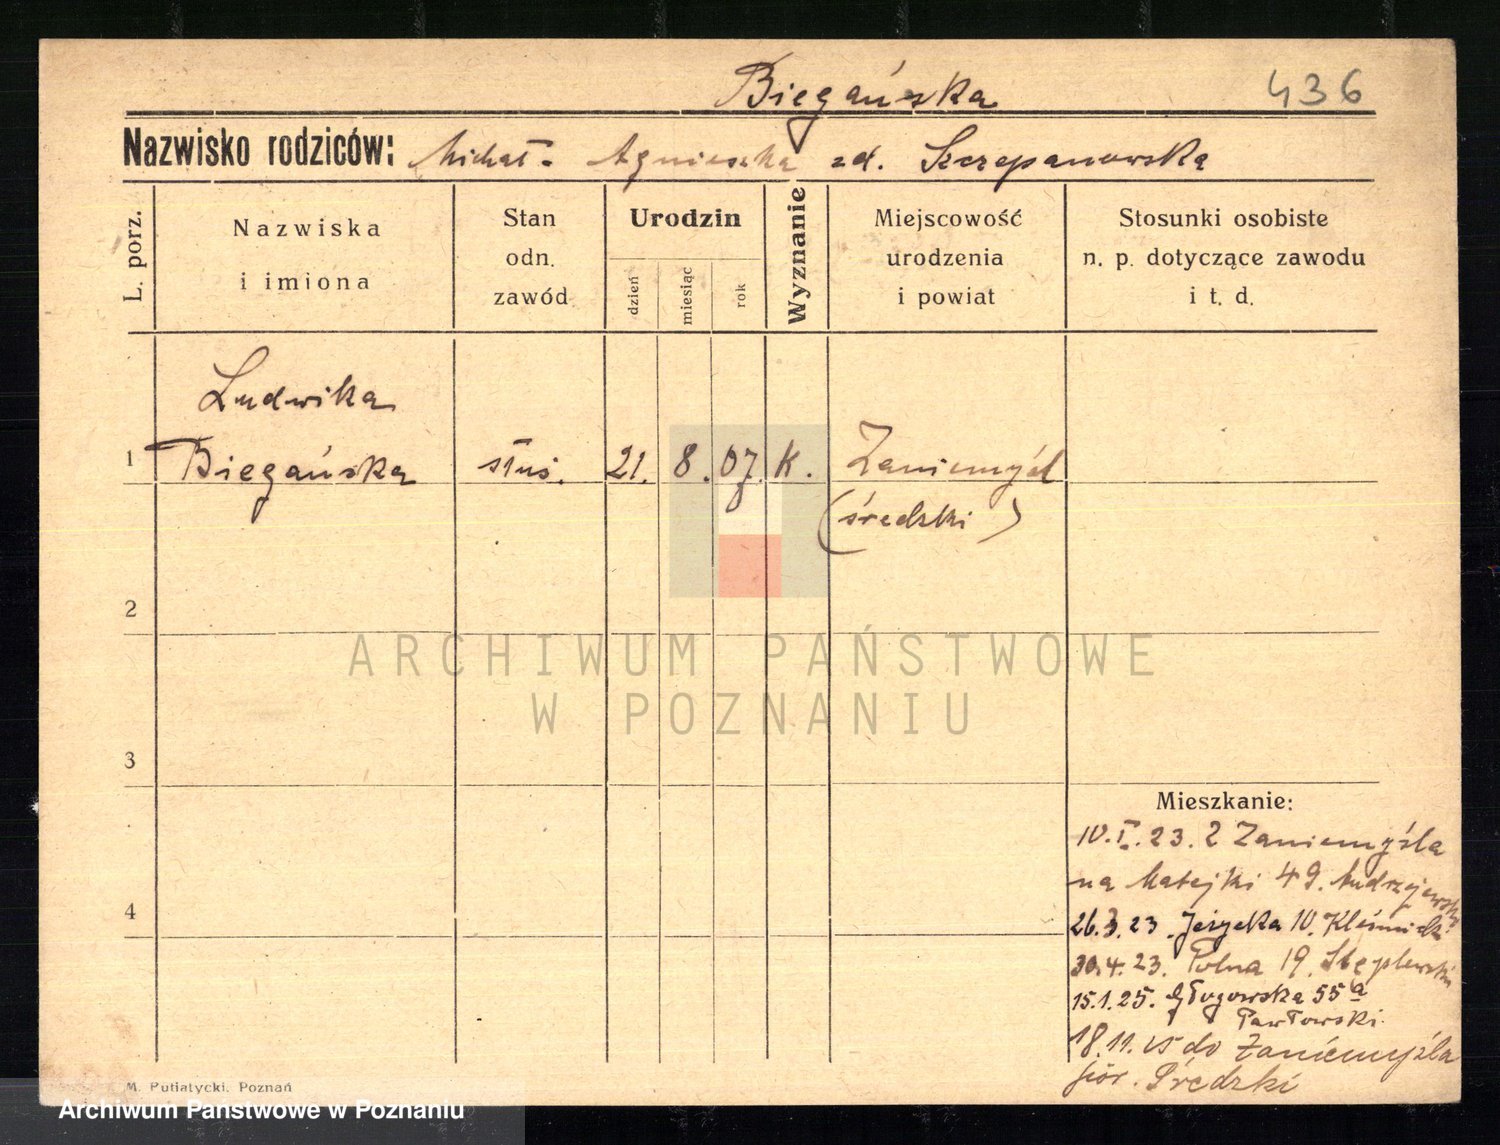 Biegańska 436
Nazwisko rodziców: Michał - Agnieszka zd. Szczepanowska
L. porz.
Nazwiska
i imiona
Stan
odn.
zawód
Urodzin
dzień
miesiąc
rok
Wyznanie
Miejscowość
urodzenia
i powiat
Stosunki osobiste
n. p. dotyczące zawodu
i t. d.
Ludwika
1 Biegańska służ. 21. 8. 07. K. Zaniemyśl
(średzki)
2
ARCHIWUM PAŃSTWOWE
W POZNANIU
3
Mieszkanie:
10.I.23. z Zaniemyśla
na Matejki 49. Andrzejewski
4
26.3.23. Jeżycka 10.
30.4.23. Polna 19.
15.1.25. Głogowska 55a
Pawłowski.
18.11. do Zaniemyśla
Średzki
M. Putiatycki, Poznań
Archiwum Państwowe w Poznaniu